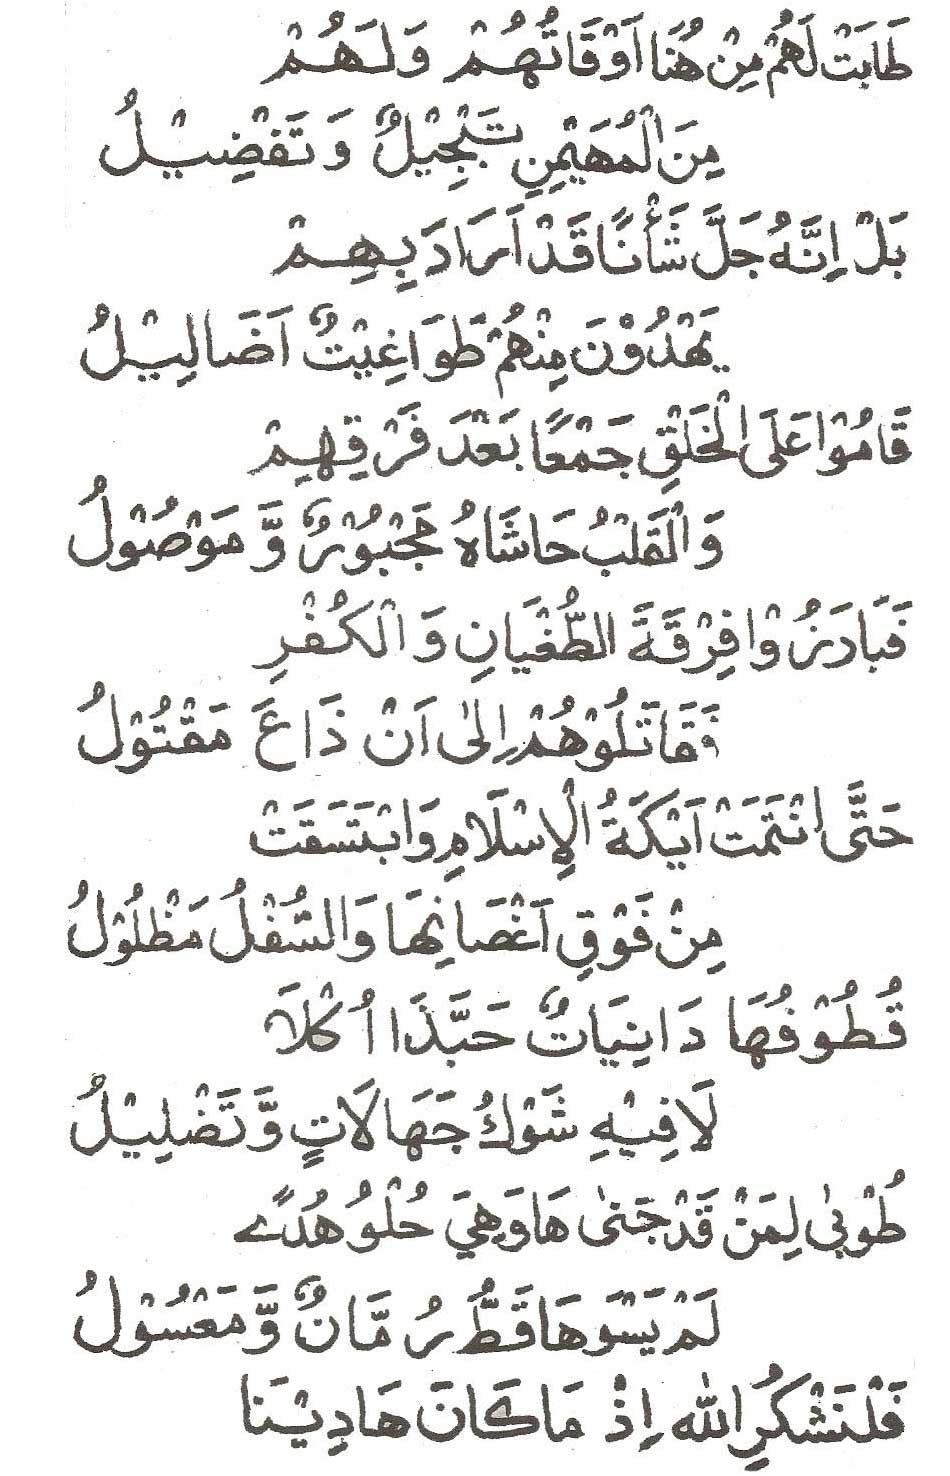 طَابَتْ لَهُمْ مِنْ هُنَا اَوْقَاتُهُمْ وَلَهُمْ
مِنَ الْمُهَيْمِنِ تَبْجِيْلٌ وَ تَفْضِيْلُ
بَلْ اِنَّهُ جَلَّ شَأْنًا قَدْ اَرَادَ بِهِمْ
يَهْدُوْنَ مِنْهُمْ طَوَاغِيْتٌ اَضَالِيْلُ
قَامُوْا عَلَى الْخَلْقِ جَمْعًا بَعْدَ فَرْقِهِمْ
وَالْقَلْبُ حَاشَاهُ مَجْبُوْرٌ وَّ مَوْصُوْلُ
فَبَادَرُوْا فِرْقَةَ الطُّغْيَانِ وَ الْكُفْرِ
فَقَاتَلُوْهُمْ اِلىٰ اَنْ ذَاعَ مَقْتُوْلُ
حَتَّى انْتَمَتْ اَيْكَةُ الْاِسْلَامِ وَابْتَسَقَتْ
مِنْ فَوْقِ اَغْصَانِهَا وَالسُّفْلُ مَظْلُوْلُ
قُطُوْفُهَا دَانِيَاتٌ حَبَّذَا اُكْلَا
لَا فِيْهِ شَوْكُ جَهَالَاتٍ وَّ تَضْلِيْلُ
طُوْبىٰ لِمَنْ قَدْ جَنىٰ هَا وَهِيَ حُلْوُ هُدًى
لَمْ يَسْوَهَا قَطُّ رُمَّانٌ وَّ مَعْسُوْلُ
فَلْنَشْكُرِ اللّٰه اِذْ مَا كَانَ هَادِيْنَا